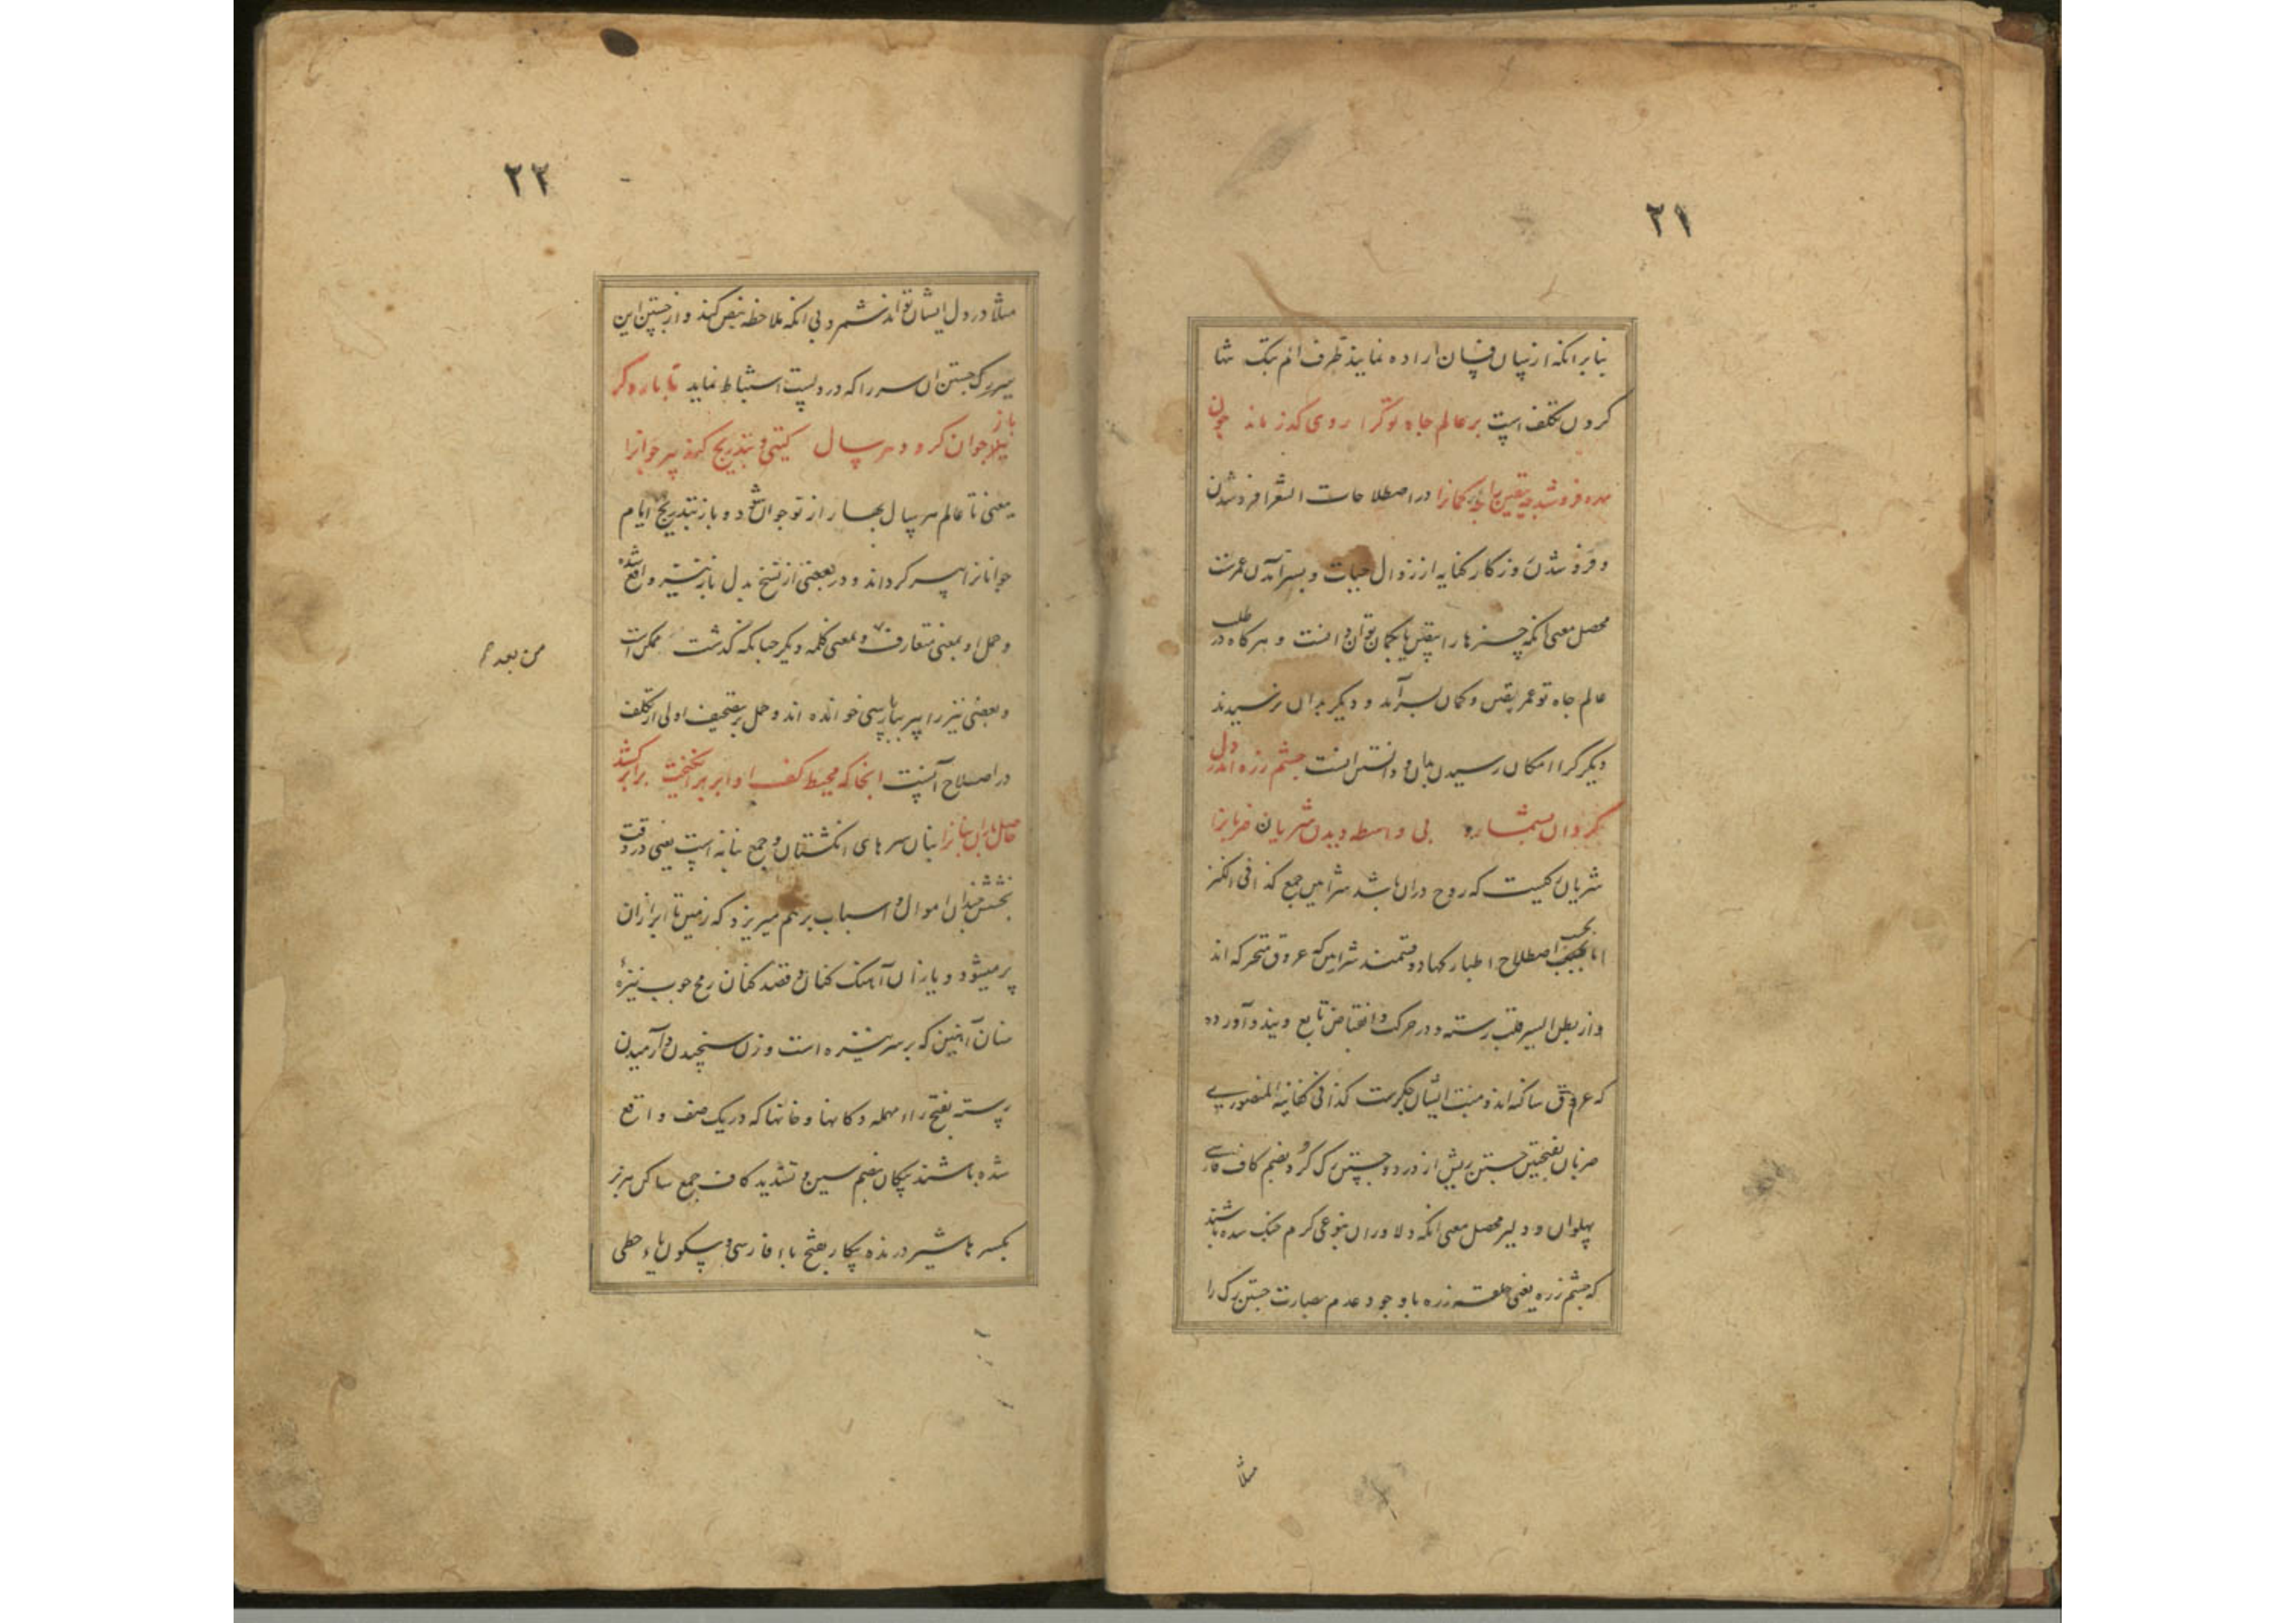 ٢١
بنابر انکه از نسیان فسان اراده نمایند ظرف انم بتک شا
کردن تکلف است بر عالم جاه تو کرا روی کذر ماند چون
شده فرو شد یقین را در اصطلاحات الشعرا فروشدن
و فرو شدن روزکار کنایه از زوال حیات و بسر آمدن عمرست
محصل معنی انکه چیزها را بیقین یا بکمان توان دانست و هرکاه در طلب
عالم جاه تو عمر یقین و کمان بسر آمد و دیکر بدان نرسیدند
دیکر کرا امکان رسیدن بدان و دانستن انست چشم زره اندر دل
کردان بشمارد بی واسطه دیدن شریان ضربانرا
شریان رکیست که روح دران باشد شرایین جمع کذا فی الکنز
اما بحسب اصطلاح اطبا رکها دو قسمند شرایین که عروق متحرکه اند
و از بطن ایسر قلب رسته و در حرکت و انقباض تابع ویند و آورده
که عروق ساکنه اند و منبت ایشان جکرست کذا فی کفایة المنصوری
ضربان بفتحتین جستن ریش از درد و جستن رک کرد بضم کاف فارسی
پهلوان و دلیر محصل معنی انکه دلاوران بنوعی کرم جنک شده باشند
که چشم زره یعنی حلقه زره باوجود عدم بصارت جستن رک را
مثلا
٢٢
مثلا در دل ایشان تواند شمرد بی انکه ملاحظه نبض کند و از جستن این
رک جستن ان سر را که در دلست استنباط نماید تا باز دکر
باز جوان کرد و هر سال کیتی و بتدریج کند پیر جوانرا
یعنی تا عالم هر سال بهار از نو جوان شود و باز بتدریج ایام
جوانانرا پیر کرداند و در بعضی از نسخ بدل باز نیز واقع شده
و حمل او بمعنی متعارف و بمعنی کلمه دیکر چنانکه کذشت ممکن است
من بعد
و بعضی نیز را پیر بباء پارسی خوانده اند و حمل بر تصحیف اولی از تکلف
در اصلاح آنست انجا که محیط کف او ابر برانکیخت برابر کشد
بنان سرهای انکشتان و جمع بنانه است یعنی در وقت
بخشش چندان اموال و اسباب بر هم میریزد که زمین تا ابر ازان
پر میشود و یازان آهنک کنان و قصد کنان رمح چوب نیزه
سنان آهنین که بر سر نیزه است وزن سنجیدن و آرمیدن
رسته بفتح راء مهمله دکانها و خانها که در یک صف واقع
شده باشند سکان بضم سین و تشدید کاف جمع ساکن هزبر
بکسر ها شیر درنده پیکار بفتح باء فارسی و سکون یاء حطی